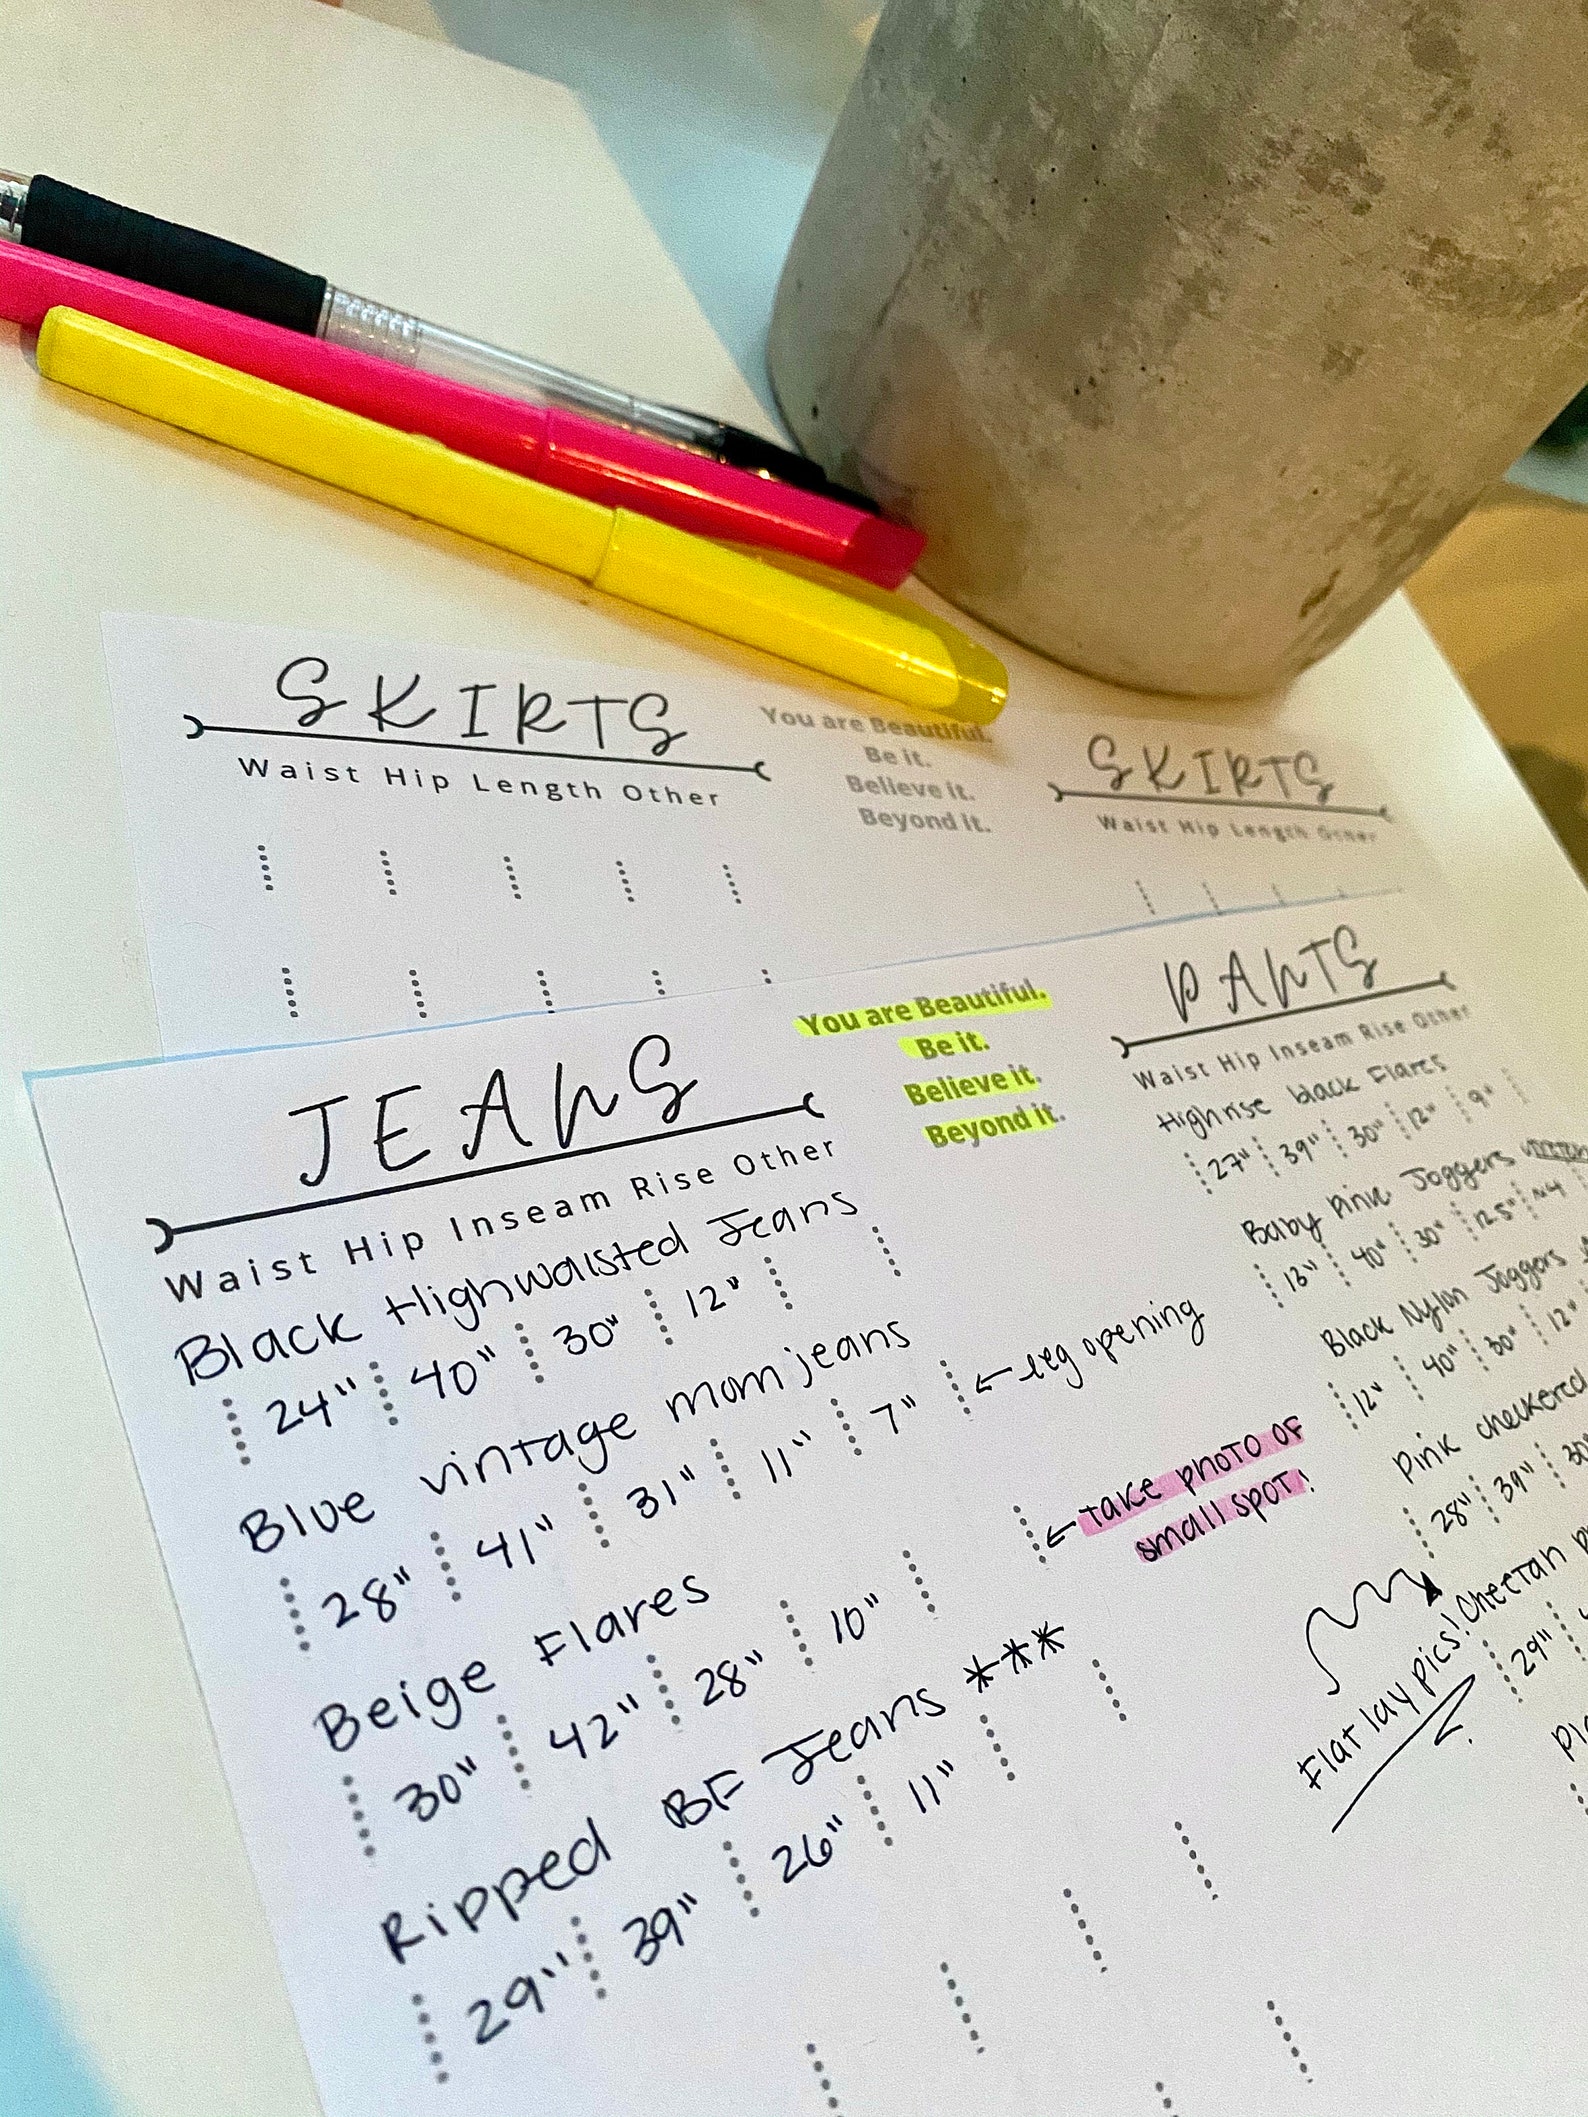 SKIRTS
Waist Hip Length Other
You are Beautiful.
Be it.
Believe it.
Beyond it.
SKIRTS
Waist Hip Length Other
JEANS
Waist Hip Inseam Rise Other
Black Highwaisted Jeans
24" 40" 30" 12"
Blue vintage mom jeans
28" 41" 31" 11" 7" ← leg opening
Beige Flares
30" 42" 28" 10" ← take photo of
small spot!
Ripped BF Jeans ***
29" 39" 26" 11"
You are Beautiful.
Be it.
Believe it.
Beyond it.
PANTS
Waist Hip Inseam Rise Other
Highrise black Flares
27" 39" 30" 12" 9"
Baby pink Joggers
13" 40" 30" 12.5"
Black Nylon Joggers
12" 40" 30" 12"
Pink checkered
28" 39" 30"
Flat lay pics! Cheetah
29"